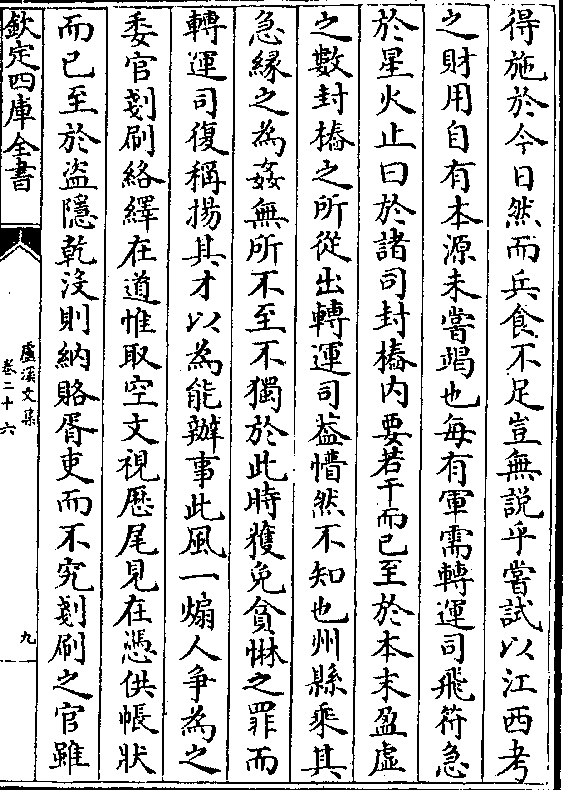 得施於今日然而兵食不足豈無説乎嘗試以江西考
之財用自有本源未嘗竭也每有軍需轉運司飛符急
於星火止曰於諸司封樁内要若干而已至於本末盈虛
之數封樁之所從出轉運司葢懵然不知也州縣乘其
急縁之為姦無所不至不獨於此時獲免貪惏之罪而
轉運司復稱揚其才以為能辦事此風一煽人爭為之
委官剗刷絡繹在道惟取空文視厯尾見在憑供帳狀
而已至於盜隱乾没則納賂胥吏而不究剗刷之官雖
欽定四庫全書
盧溪文集
卷二十六
九